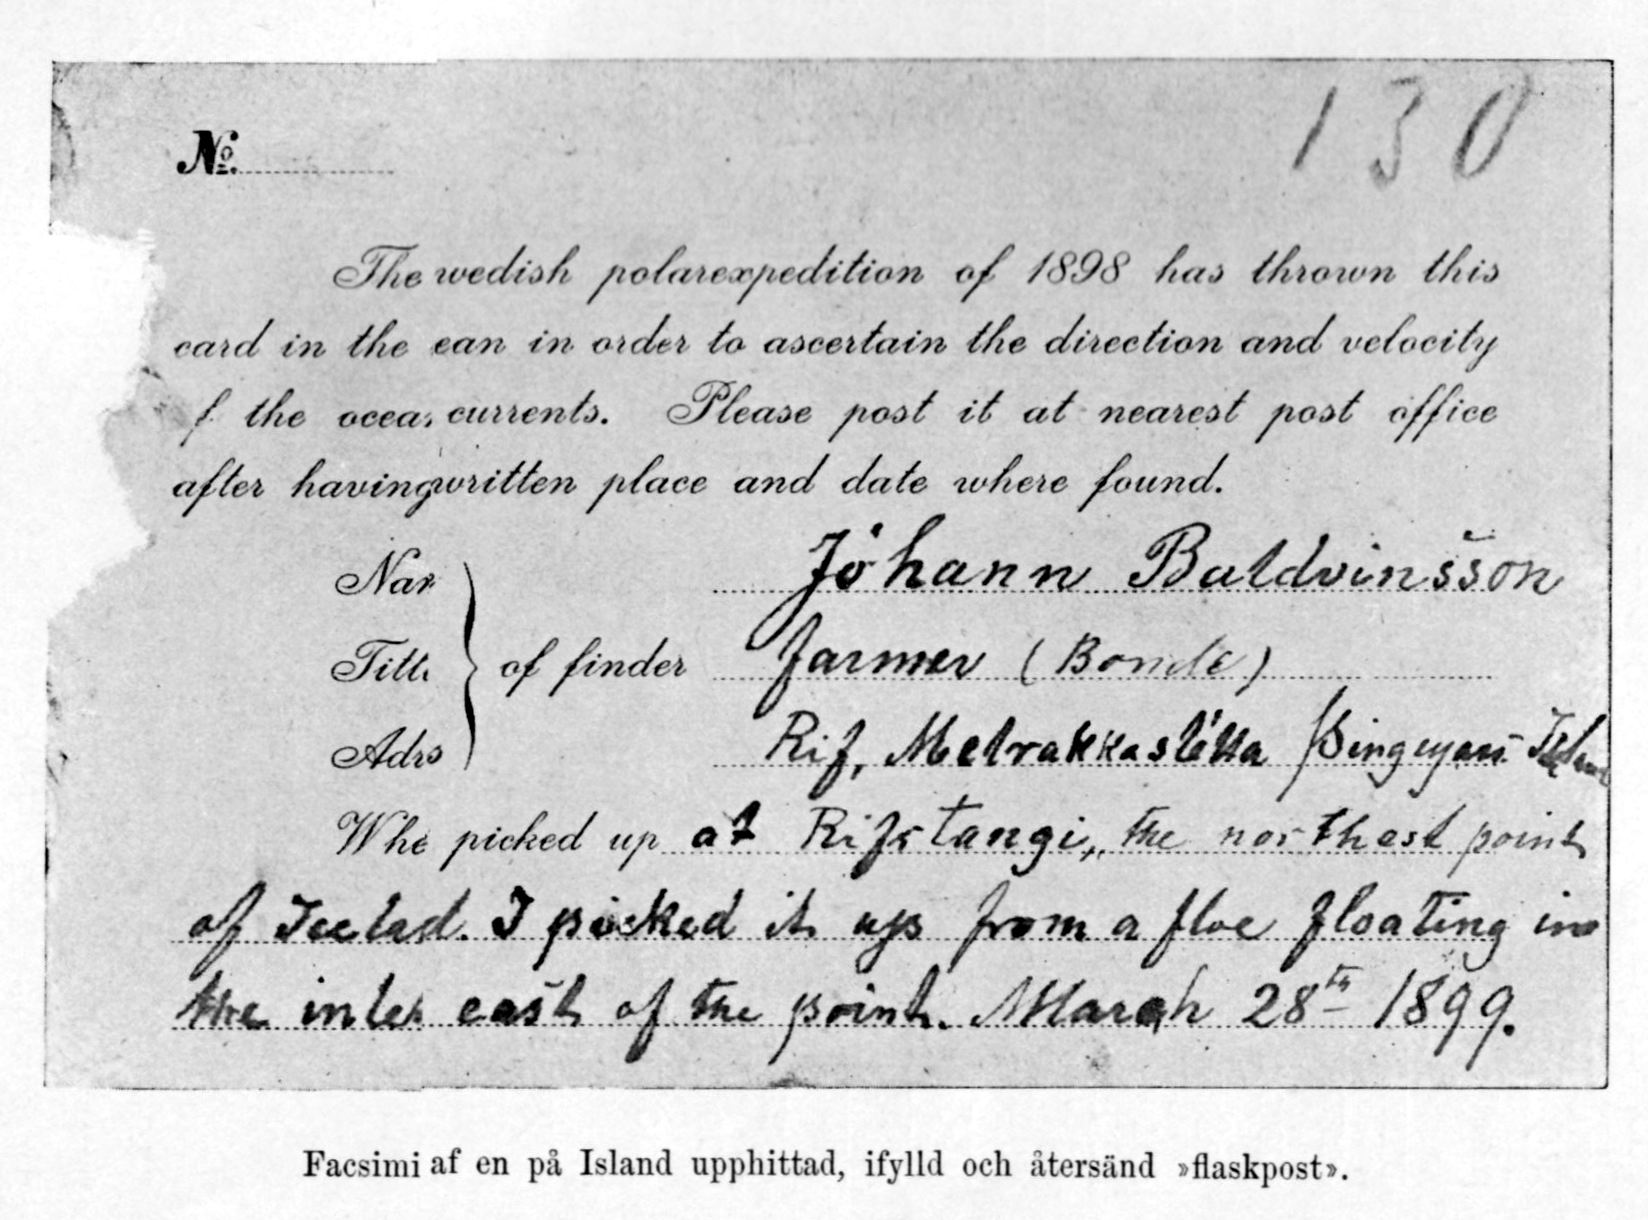 130
№
The wedish polarexpedition of 1898 has thrown this
card in the ean in order to ascertain the direction and velocity
f the ocea currents. Please post it at nearest post office
after havingwritten place and date where found.
Nar Jóhann Baldvinsson
Titl of finder farmer (Bonde)
Adrs Rif, Melrakkaslétta Þingeyars.
Whe picked up at Rifstangi, the northest point
of Icelad. I picked it up from a floe floating in
the inlet east of the point. March 28th 1899.
Facsimi af en på Island upphittad, ifylld och återsänd »flaskpost».